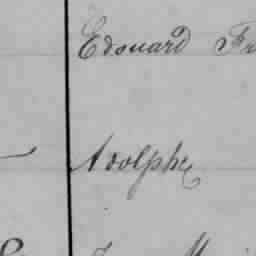 Edouard Fr
Adolphe